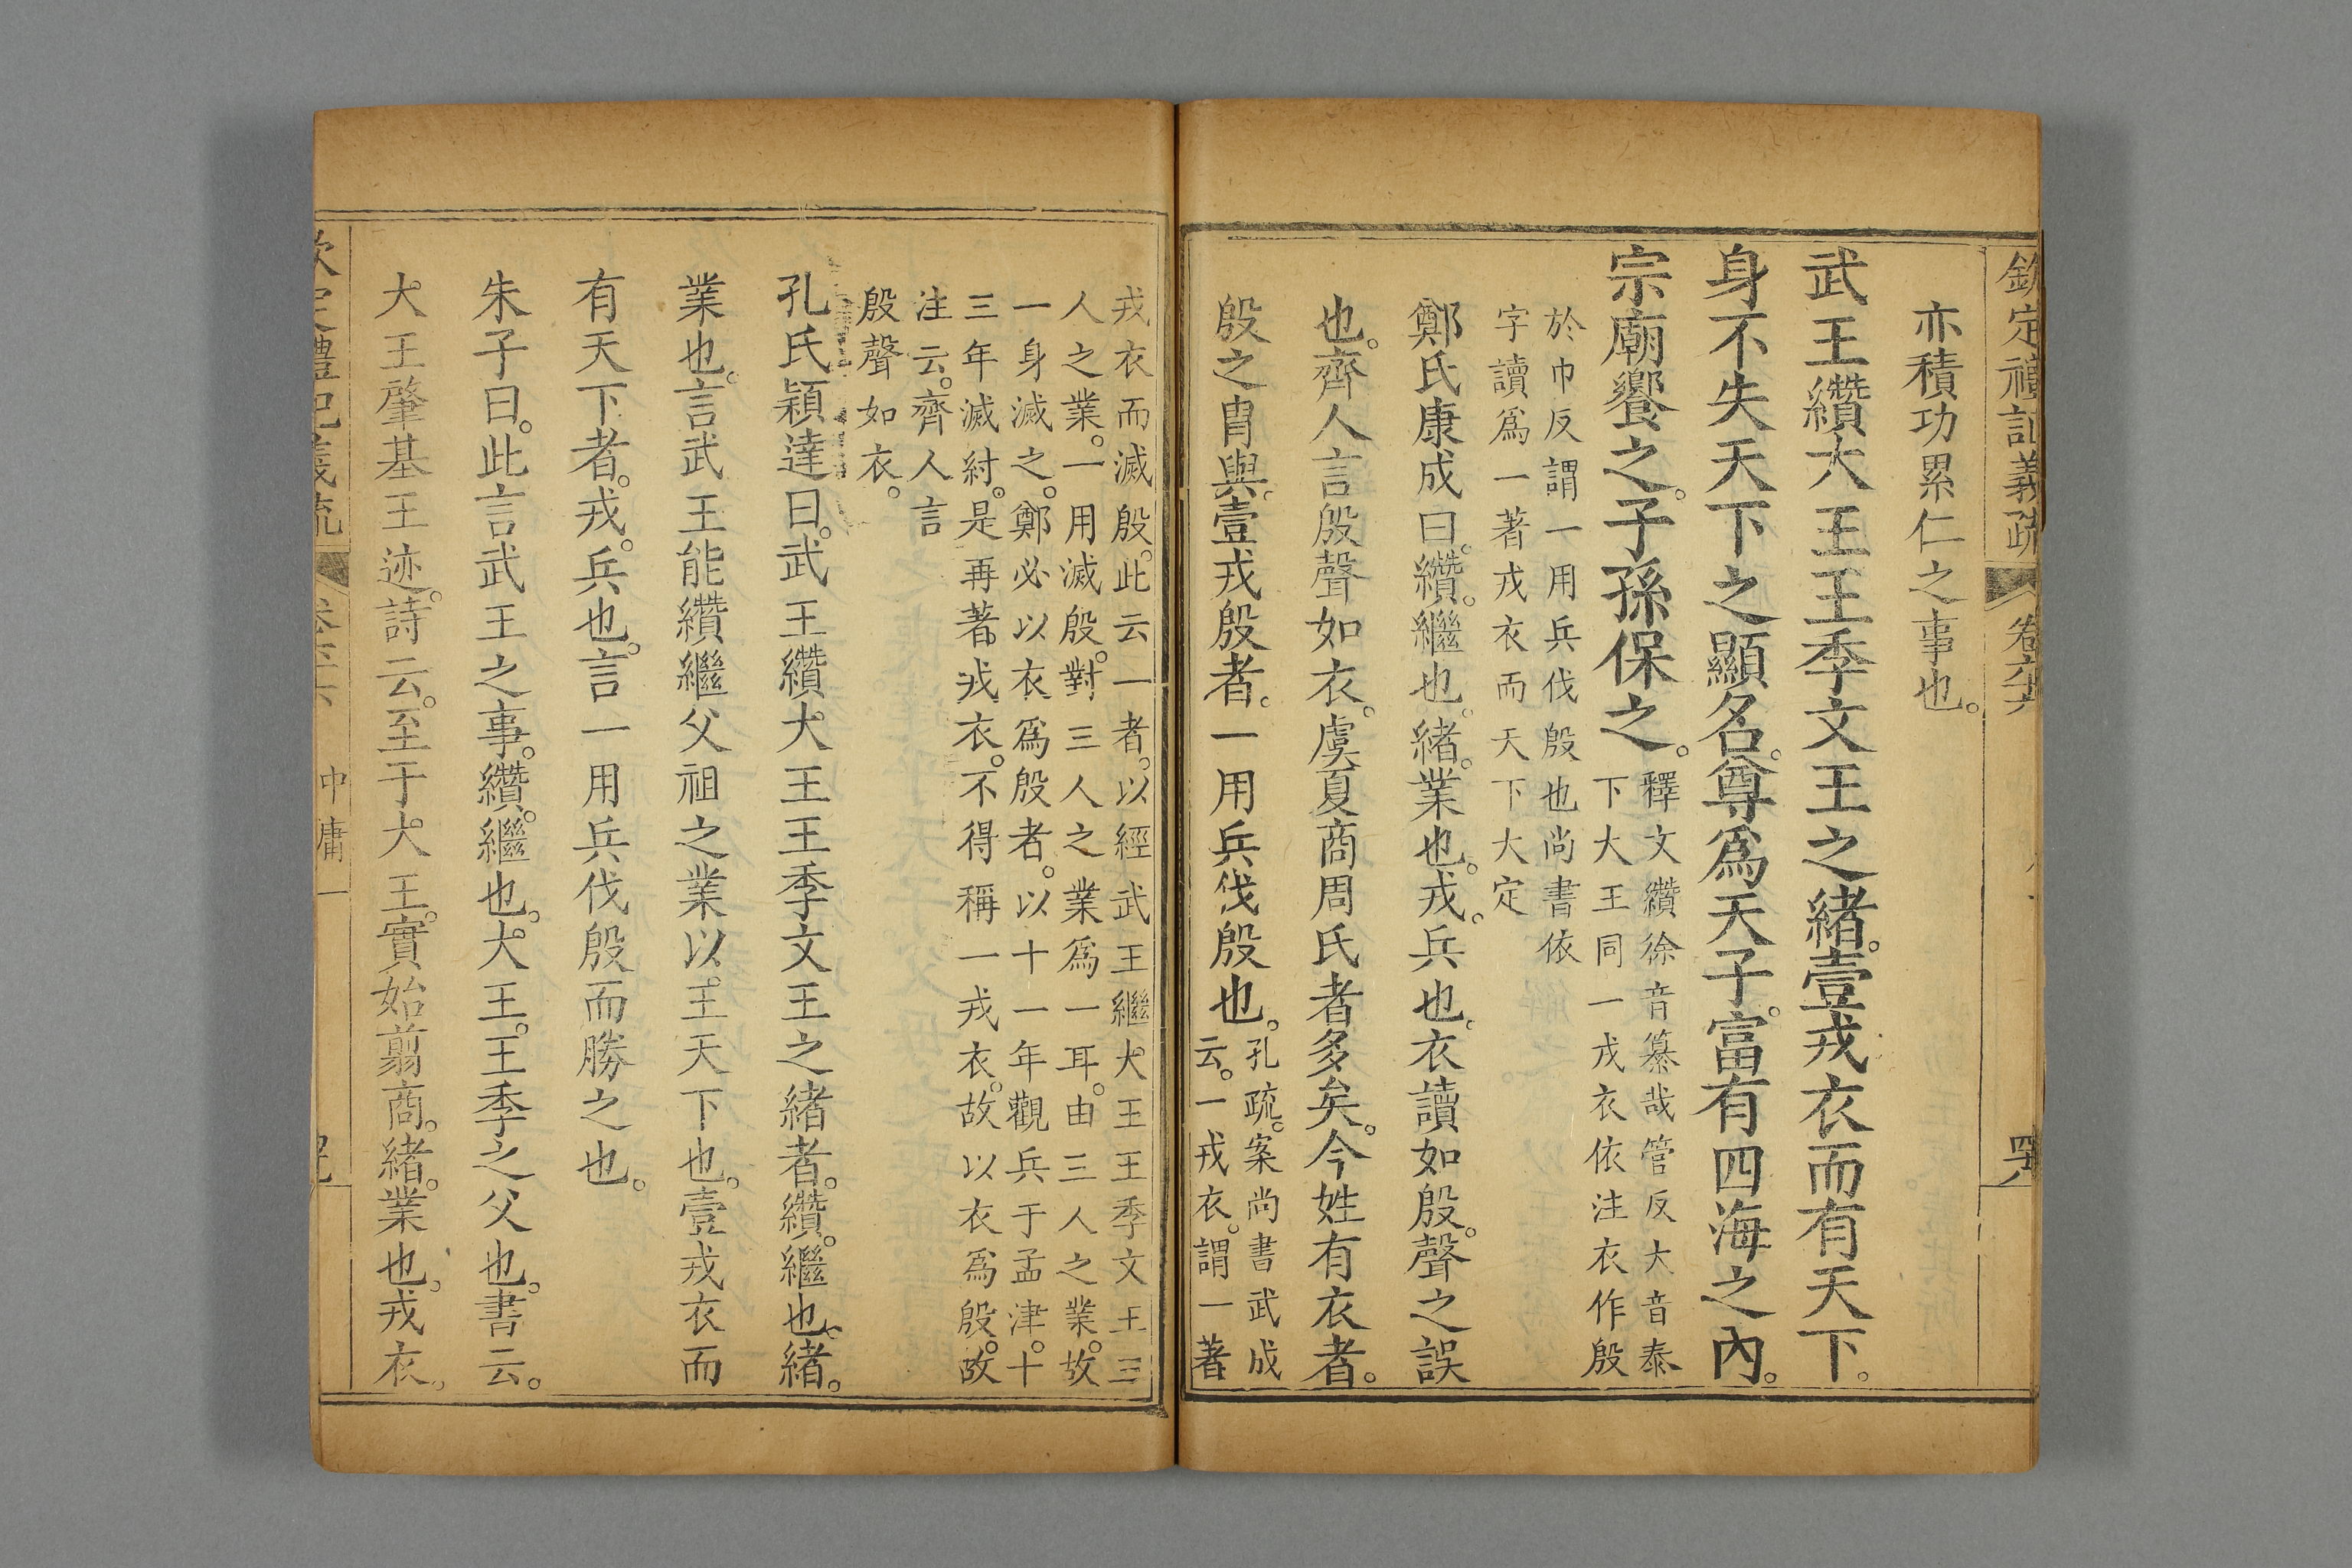 欽定禮記義疏 卷六十六
亦積功累仁之事也。
武王纘大王王季文王之緒。壹戎衣而有天下。
身不失天下之顯名。尊爲天子。富有四海之內。
宗廟饗之。子孫保之。
釋文纘徐音纂哉管反大音泰
下大王同一戎衣依注衣作殷
於巾反謂一用兵伐殷也尚書依
字讀爲一著戎衣而天下大定
鄭氏康成曰。纘。繼也。緒。業也。戎。兵也。衣讀如殷。聲之誤
也。齊人言殷聲如衣。虞夏商周氏者多矣。今姓有衣者。
殷之胄與。壹戎殷者。一用兵伐殷也。
孔疏。案尚書武成
云。一戎衣。謂一著
戎衣而滅殷。此云一者。以經武王繼大王王季文王三
人之業。一用滅殷。對三人之業爲一耳。由三人之業。故
一身滅之。鄭必以衣爲殷者。以十一年觀兵于孟津。十
三年滅紂。是再著戎衣。不得稱一戎衣。故以衣爲殷。故
注云。齊人言
殷聲如衣。
孔氏穎達曰。武王纘大王王季文王之緒者。纘。繼也。緒。
業也。言武王能纘繼父祖之業以王天下也。壹戎衣而
有天下者。戎。兵也。言一用兵伐殷而勝之也。
朱子曰。此言武王之事。纘。繼也。大王。王季之父也。書云。
大王肇基王迹。詩云。至于大王。實始翦商。緒。業也。戎衣。
欽定禮記義疏 中庸一